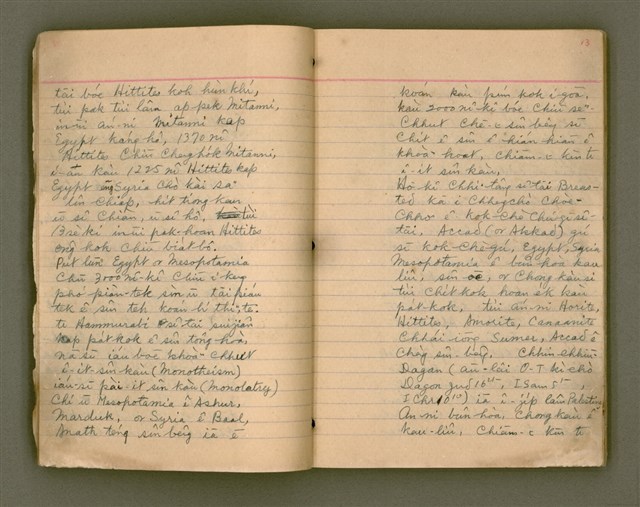 tāi bóe Hittites koh hùn khí,
tùi pak tùi lâm ap-pek Mitanni,
in-ūi án-ni Mitanni kap
Egypt káng-hô, 1370 nî
Hittites Chiū Cheng-hók Mitanni,
i-āu kàu 1225 nî Hittites kap
Egypt ēng Syria chò kài sa
lîn Chiap, hit tiong kan
ū sî Chiàn, ū sî hô, tùi
13 sè-kí in-ūi pak-hoan Hittites
ông kok Chiū biat-bô.
Put lūn Egypt or Mesopotamia
Chiū 3000 nî-kî Chiū í-keng
pho piàn-tek sìn ū tāi piáu
tek ê sîn tek koân bī thi-te.
te Hammurabi sî-tāi sui-jiân
kap pát kok ê sîn tong-hòa,
nā sū iáu bōe khoà-chhut
ê-it-sîn-kàu (Monotheism)
iáu-sī pài-it-sîn kàu (Monolatry)
Chí ū Mesopotamia ê Ashur,
Marduk, or Syria ê Baal,
Anath téng sîn-bêng iā ē
13
koán kàu pún kok í-gōa.
kàu 2000 nî-kî bóe Chiū sè-
Chhut Chē-c sîn bêng sī
Chit ê sîn ê hián-hiān ê
khoà-hoat, Chiām-c kīn tī
it-sîn kàu,
Hō-kì Chhi-tāng sî-tāi Breas-
ted kā i Chhēng chò Chòe-
Chho ê kok-Chè Chú-gī sî-
tāi, Accad (or Akkad) gí
sī kok-Chè-gí, Egypt, Syria
Mesopotamia ê bûn-hòa kau
liû, sîn or Chong-kàu sī
tùi Chit kok hoàn ek kàu
pát-kok, tùi án-ni Horite,
Hittites, Amorite, Canaanite
Chhái iōng Sumer, Accad ê
Chèng sîn-bêng. Chhin-chhiūⁿ
Dagan (āu-lâi O-T kì chò
Dagon Jud 16²³, I Sam 5¹⁻,
I Chr 10¹⁰) iā ê-jíp lâm Palestin,
án-ni bûn-hòa, Chong kàu ê
kau-liû, Chiām-c kīn tī